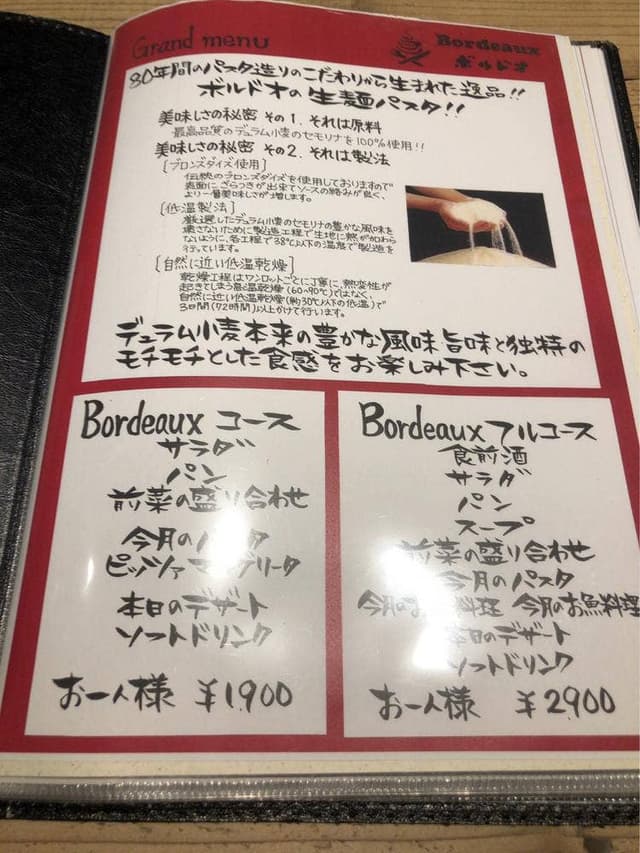 Grand menu
Bordeaux
ボルドオ
30年間のパスタ造りのこだわりから生まれた逸品!!
ボルドオの生麺パスタ!!
美味しさの秘密 その1. それは原料
最高品質のデュラム小麦のセモリナを100%使用!!
美味しさの秘密 その2. それは製法
[ブロンズダイズ使用]
伝統のブロンズダイズを使用しておりますので
表面にざらつきが出来てソースの絡みが良く、
より一層美味しさが増します。
[低温製法]
厳選したデュラム小麦のセモリナの豊かな風味を
壊さないために製造工程で生地に熱が加わら
ないように、各工程で38℃以下の温度で製造を
行っています。
[自然に近い低温乾燥]
乾燥工程はワンロットごとに丁寧に、熱変性が
起きてしまう高温乾燥(60~90℃)ではなく、
自然に近い低温乾燥(約30℃以下の低温)で
3日間(72時間)以上かけて行います。
デュラム小麦本来の豊かな風味旨味と独特の
モチモチとした食感をお楽しみ下さい。
Bordeaux コース
サラダ
パン
前菜の盛り合わせ
今月のパスタ
ピッツァマルゲリータ
本日のデザート
ソフトドリンク
お一人様 ¥1,900
Bordeaux フルコース
食前酒
サラダ
パン
スープ
前菜の盛り合わせ
今月のパスタ
今月のお 料理 今月のお魚料理
本日のデザート
ソフトドリンク
お一人様 ¥2900